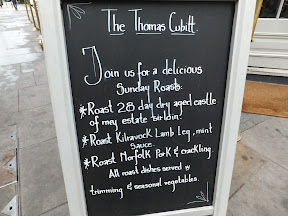 The Thomas Cubitt.
Join us for a delicious
Sunday Roast:
*Roast 28 day dry aged castle
of mey estate sirldin.
*Roast Kilravock Lamb Leg, mint
sauce.
*Roast Norfolk Pork & crackling.
All roast dishes served w
trimming & seasonal vegetables.